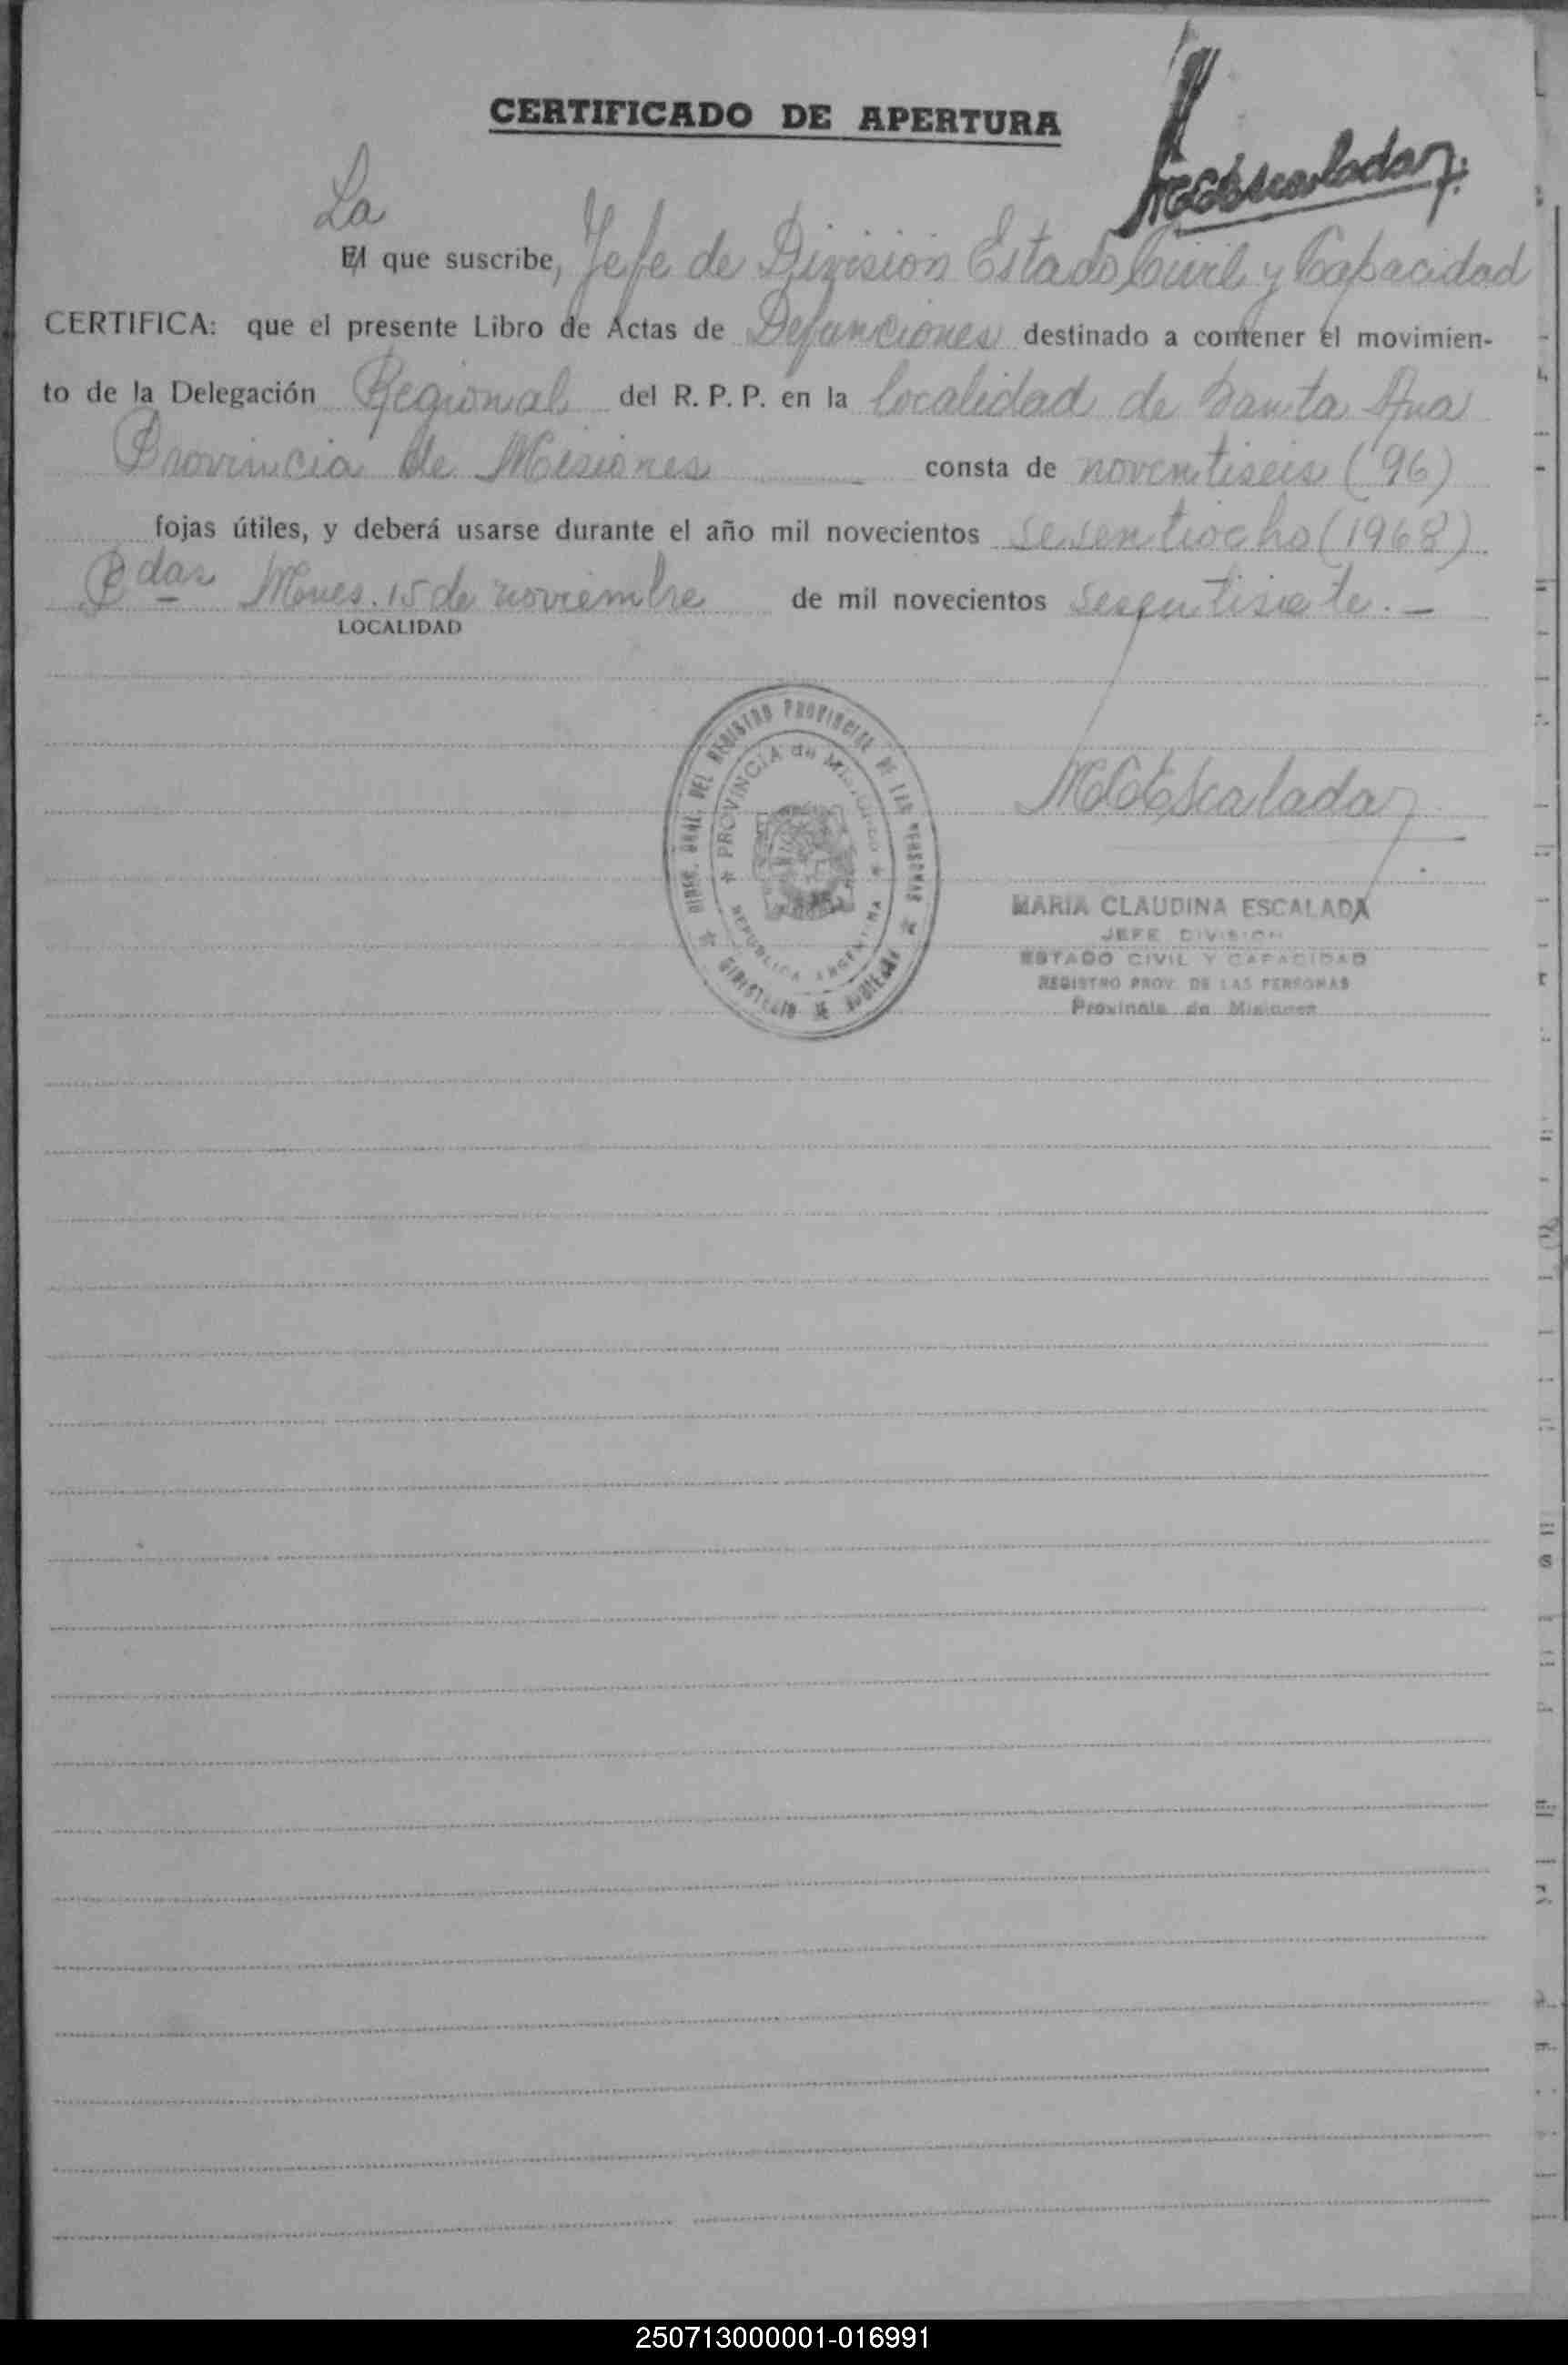 CERTIFICADO DE APERTURA
MCEscalada
La
El que suscribe, Jefe de División Estado Civil y Capacidad
CERTIFICA: que el presente Libro de Actas de Defunciones destinado a contener el movimien-
to de la Delegación Regional del R. P. P. en la localidad de Santa Ana
Provincia de Misiones consta de noventiseis (96)
fojas útiles, y deberá usarse durante el año mil novecientos sesentiocho (1968)
Pdas Mnes. 15 de noviembre de mil novecientos sesentisiete.-
LOCALIDAD
DIREC. GRAL. DEL REGISTRO PROVINCIAL DE LAS PERSONAS
PROVINCIA de Misiones
REPUBLICA ARGENTINA
MINISTERIO
MCEscalada
MARIA CLAUDINA ESCALADA
JEFE DIVISION
ESTADO CIVIL Y CAPACIDAD
REGISTRO PROV. DE LAS PERSONAS
Provincia de Misiones
250713000001-016991